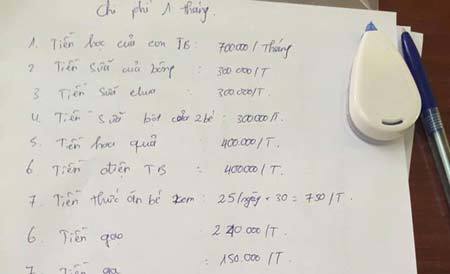 Chi phí 1 tháng.
1. Tiền học của con TB : 700000/Tháng
2 Tiền sữa quả bóng : 300 000/T
3 Tiền sữa chua : 300.000/T.
4. Tiền sữa bột của 2 bé : 300000/T.
5. Tiền hoa quả : 400.000/T.
6 Tiền điện TB : 400000/T.
7. Tiền thức ăn bé : 25/ngày × 30 = 750/T.
6. Tiền gạo : 240.000/T.
7. Tiền ga : 150.000/T.